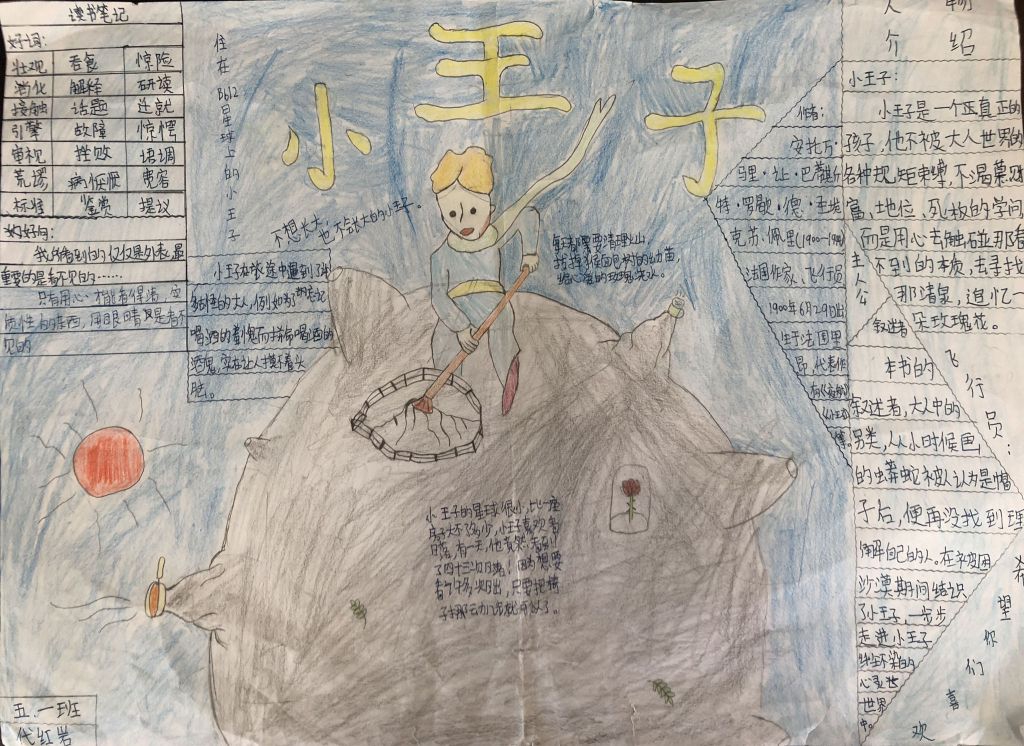 读书笔记
好词:
壮观 吞食 惊险
消化 解释 研读
接触 话题 迁就
引擎 故障 惊愕
审视 挫败 语调
荒谬 宽容
标准 鉴赏 提议
好句:
重要的是看不见的……
只有用心,才能看得清,实
质性的东西,用眼睛是看不
见的
住在B612星球上的小王子
小王子
不想长大,也不会长大的小王子。
小王子在旅途中遇到了许
多
喝酒的
酒鬼,实在让人摸不着头
脑。
每天都要清理火山,
小王子的星球很小,比一座
房子大不了多少,小王子喜欢看
日落,有一天,他竟然看到
了四十三次日落!
五.一班
代红岩
人物
介绍
小王子:
小王子是一个真正的
孩子,他不被大人世界的
各种规矩束缚,不渴慕财
富、地位、死板的学问
而是用心去触碰那看
不到的本质,去寻找
那清泉,追忆一
朵玫瑰花。
主人公
作者:
安托万·
马里·让·巴蒂斯
特·罗歇·德·圣埃
克苏·佩里(1900—1944)
法国作家、飞行员
1900年6月29日出
生于法国里
昂,代表作
有《夜航》
《小王子》
等。
叙述者
飞行员:
本书的
叙述者,大人中的
另类,从小时候画
的蟒蛇被人认为是帽
子后,便再没找到理
解自己的人。在被困
沙漠期间结识
了小王子,一步步
走进小王子
纤尘不染的
心灵世
世界
中。
希望你们喜欢